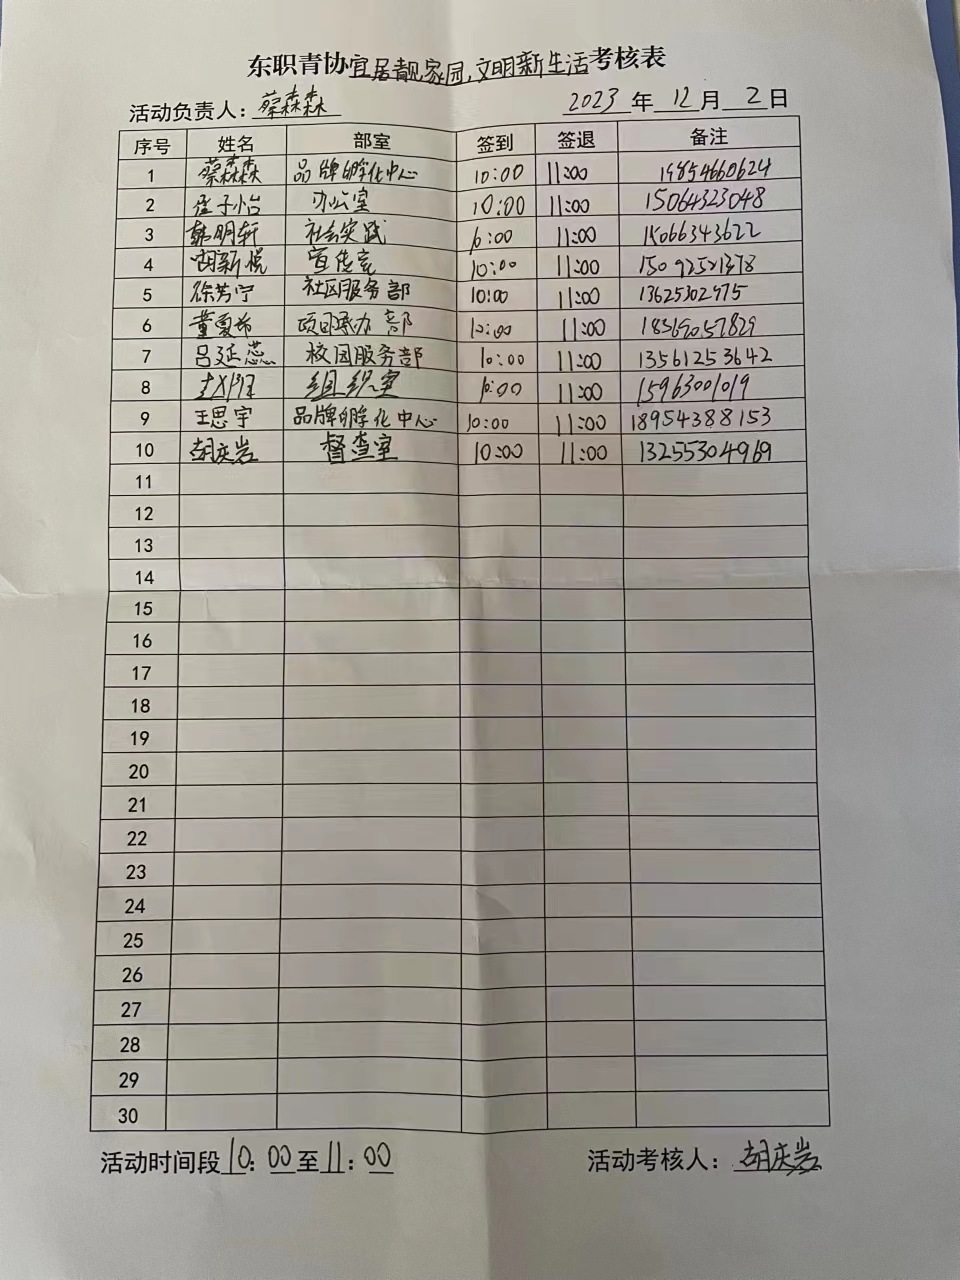 东职青协宜居靓家园,文明新生活考核表
活动负责人: 蔡森森 2023 年 12 月 2 日
序号 姓名 部室 签到 签退 备注
1 蔡森森 品牌孵化中心 10:00 11:00 19854660624
2 孟子怡 办公室 10:00 11:00 15064323048
3 韩明轩 社会实践 10:00 11:00 15066343622
4 胡新悦 宣传室 10:00 11:00 15092521378
5 徐芳宁 社区服务部 10:00 11:00 13625302975
6 董夏希 项目承办部 10:00 11:00 18369057829
7 吕延蕊 校园服务部 10:00 11:00 13561253642
8 组织室 10:00 11:00 15963001019
9 王思宇 品牌孵化中心 10:00 11:00 18954388153
10 胡庆岩 督查室 10:00 11:00 13255304969
11
12
13
14
15
16
17
18
19
20
21
22
23
24
25
26
27
28
29
30
活动时间段 10:00 至 11:00 活动考核人: 胡庆岩